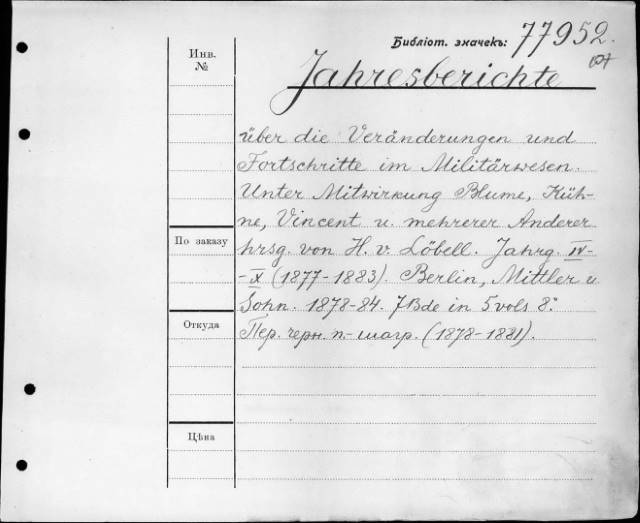 Библіот. значекъ: 77952.
Инв.
№
Jahresberichte
über die Veränderungen und
Fortschritte im Militärwesen.
Unter Mitwirkung Blume, Küh-
ne, Vincent u. mehrerer Anderer
По заказу
hrsg. von H. v. Löbell. Jahrg. IV-
-X (1877-1883). Berlin, Mittler u
Sohn. 1878-84. 7 Bde in 5 vols 8°.
Откуда
Пер. черн. п.-шагр. (1878-1881).
Цѣна